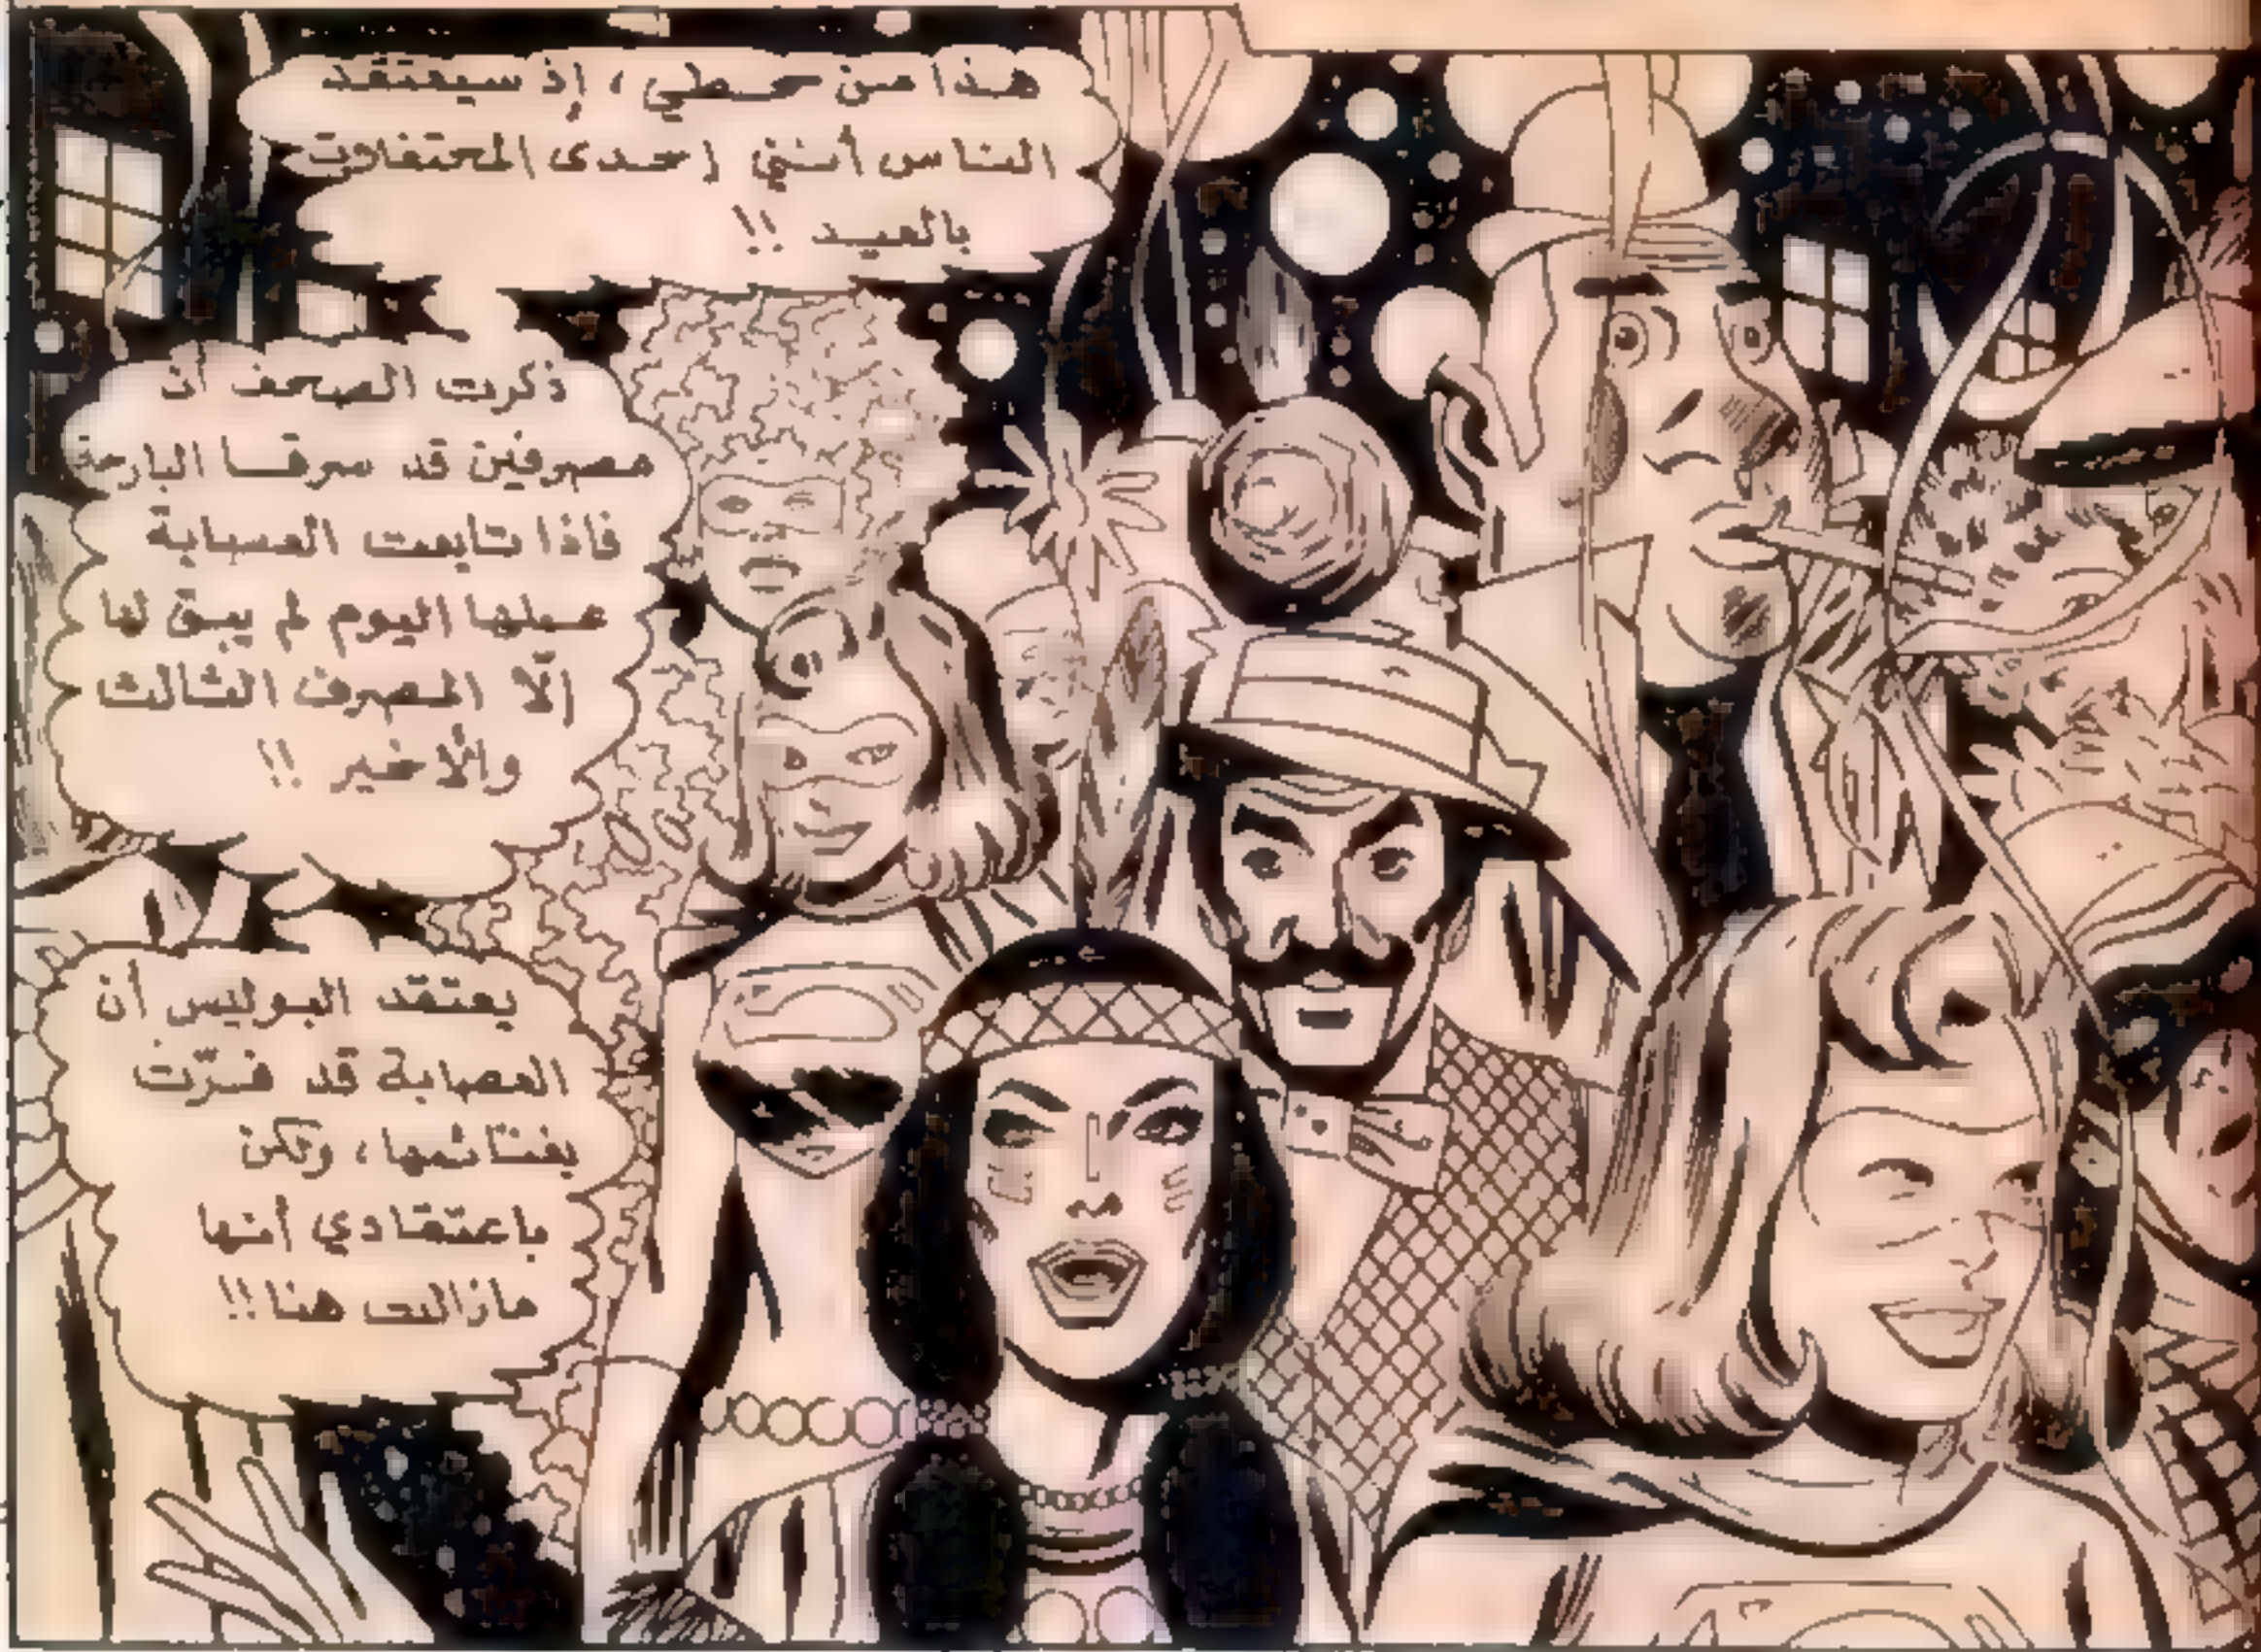 هذا من حظي، إذ سيعتقد
الناس أنني إحدى المحتفلات
بالعيد !!
ذكرت الصحف أن
مصرفين قد سرقا البارحة
فاذا تابعت العصابة
عملها اليوم لم يبق لها
إلّا المصرف الثالث
والأخير !!
يعتقد البوليس أن
العصابة قد فرّت
بغنائمها، ولكن
باعتقادي أنها
مازالت هنا !!